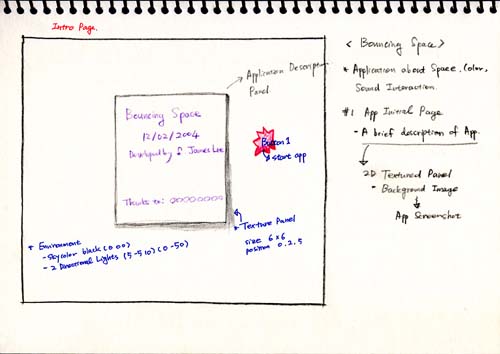 Intro Page.
Application Description
Panel
Bouncing Space
12/02/2004
Developed by James Lee
Thanks to: OOOOOOOO
Button 1
start app
* Texture Panel
size 6×6
position 0.2.5
* Environment
- Skycolor black (0 0 0)
- 2 Directional Lights (5 -5 10) (0 -5 0)
< Bouncing Space >
* Application about Space, Color,
Sound Interaction.
#1 App Initial Page
- A brief description of App.
2D Textured Panel
- Background Image
App Screenshot